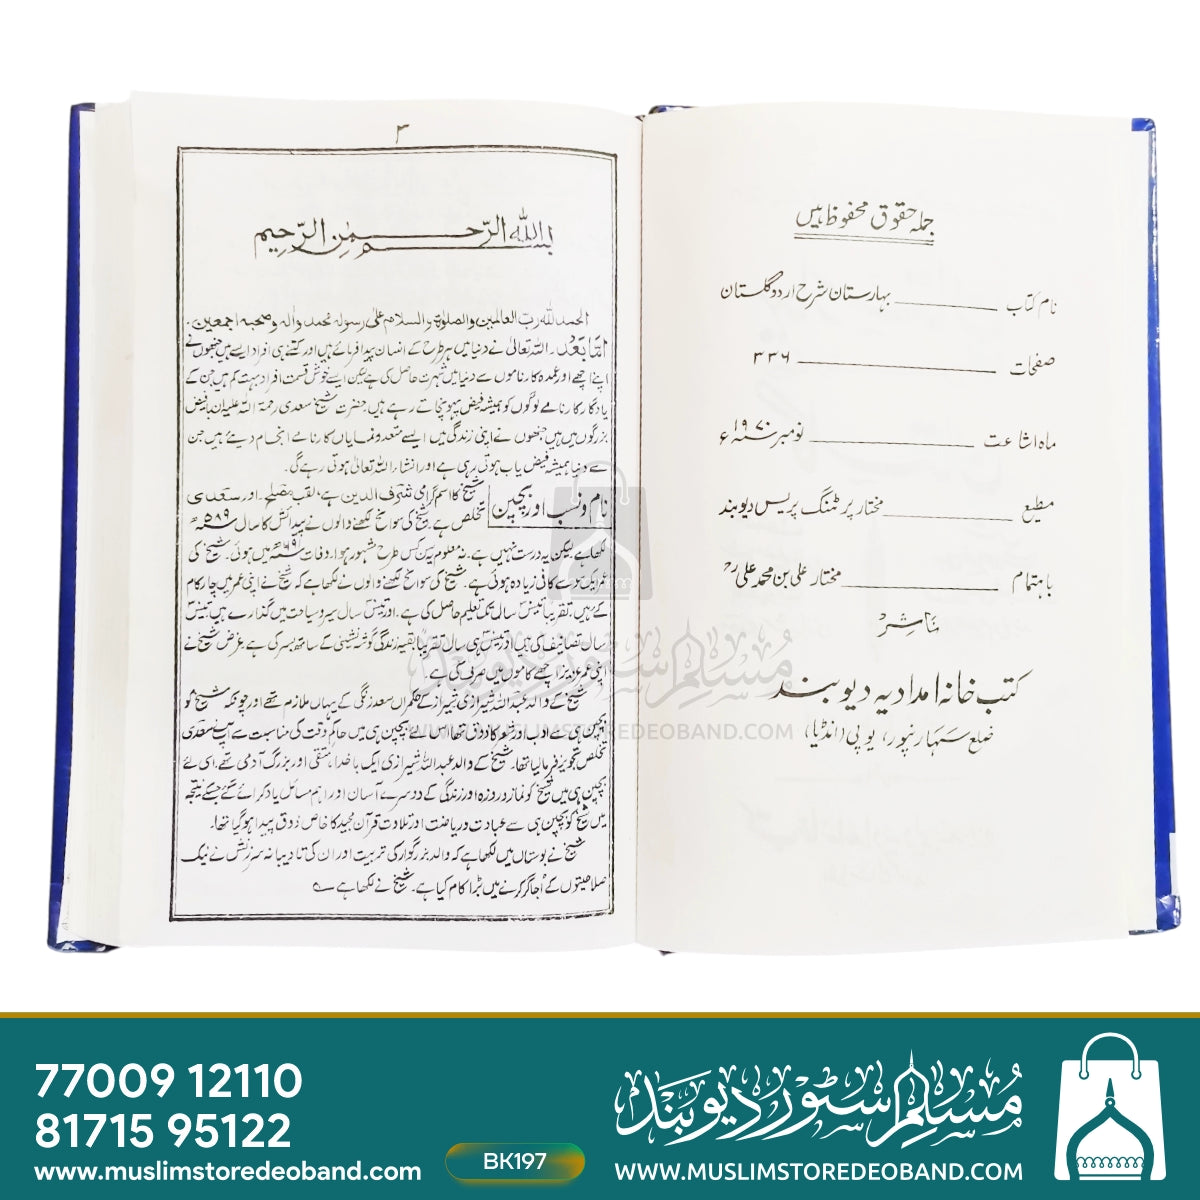 جملہ حقوق محفوظ ہیں
نام کتاب ــــــ بہارستان شرح اردو گلستان
صفحات ــــــ ۳۳۶
ماہ اشاعت ــــــ نومبر ۱۹۷۰ء
مطبع ــــــ مختار پرنٹنگ پریس دیوبند
باہتمام ــــــ مختار علی بن محمد علی رح
ناشر
کتب خانہ امدادیہ دیوبند
ضلع سہارنپور، یو پی (انڈیا)
۳
بسم اللہ الرحمٰن الرحیم
الحمد للہ رب العالمین والصلوۃ والسلام علی رسولہ محمد والہ وصحبہ اجمعین۔
امّا بعد۔ اللہ تعالیٰ نے دنیا میں ہر طرح کے انسان پیدا فرمائے ہیں اور کتنے ہی افراد ایسے ہیں جنھوں نے
اپنے اچھے اور عمدہ کارناموں سے دنیا میں شہرت حاصل کی ہے لیکن ایسے خوش قسمت افراد بہت کم ہیں جن کے
یادگار کارنامے لوگوں کو ہمیشہ فیض پہونچاتے رہے ہیں حضرت شیخ سعدی رحمۃ اللہ علیہ ان بافیض
بزرگوں میں ہیں جنھوں نے اپنی زندگی میں ایسے متعدد نمایاں کارنامے انجام دیئے ہیں جن
سے دنیا ہمیشہ فیض یاب ہوتی رہی ہے اور انشاء اللہ تعالیٰ ہوتی رہے گی۔
نام و نسب اور بچپن
شیخ کا اسم گرامی شرف الدین ہے، لقب مصلح۔ اور سعدی
تخلص ہے۔ شیخ کی سوانح لکھنے والوں نے پیدائش کا سال ۵۸۹ھ
لکھا ہے لیکن یہ درست نہیں ہے۔ نہ معلوم یہ سن کس طرح مشہور ہوا۔ وفات ۶۹۱ھ میں ہوئی۔ شیخ کی
عمر ایک سو سے کافی زیادہ ہوئی ہے۔ شیخ کی سوانح لکھنے والوں نے لکھا ہے کہ شیخ نے اپنی عمر میں چار کام
کئے ہیں، تقریباً تیس سال تک تعلیم حاصل کی ہے۔ اور تیس سال سیر و سیاحت میں گذارے ہیں تیس
سال تصانیف کی ہیں اور تیس ہی سال تقریباً بقیہ زندگی گوشہ نشینی کے ساتھ بسر کی ہے، غرض شیخ نے
اپنی عمر عزیز اچھے کاموں میں صرف کی ہے۔
شیخ کے والد عبد اللہ شیرازی شیراز کے حکمراں سعد زنگی کے یہاں ملازم تھے اور چونکہ شیخ کو
بچپن ہی سے ادب اور شعر کا ذوق تھا اس لئے بچپن ہی میں حاکم وقت کی مناسبت سے اپنے سعدی
تخلص تجویز فرمالیا تھا۔ شیخ کے والد عبد اللہ شیرازی ایک باخدا، متقی اور بزرگ آدمی تھے، اسی لئے
بچپن ہی میں شیخ کو نماز و روزہ اور زندگی کے دوسرے آسان اور اہم مسائل یاد کرائے گئے جسکے نتیجہ
میں شیخ کو بچپن ہی سے عبادت و ریاضت اور تلاوت قرآن مجید کا خاص ذوق پیدا ہوگیا تھا۔
شیخ نے بوستاں میں لکھا ہے کہ والد بزرگوار کی تربیت اور ان کی تادیبانہ سرزنش نے نیک
صلاحیتوں کے اُجاگر کرنے میں بڑا کام کیا ہے۔ شیخ نے لکھا ہے
مسلم سٹور دیوبند
WWW.MUSLIMSTOREDEOBAND.COM
77009 12110
81715 95122
www.muslimstoredeoband.com
BK197
مسلم سٹور دیوبند
WWW.MUSLIMSTOREDEOBAND.COM